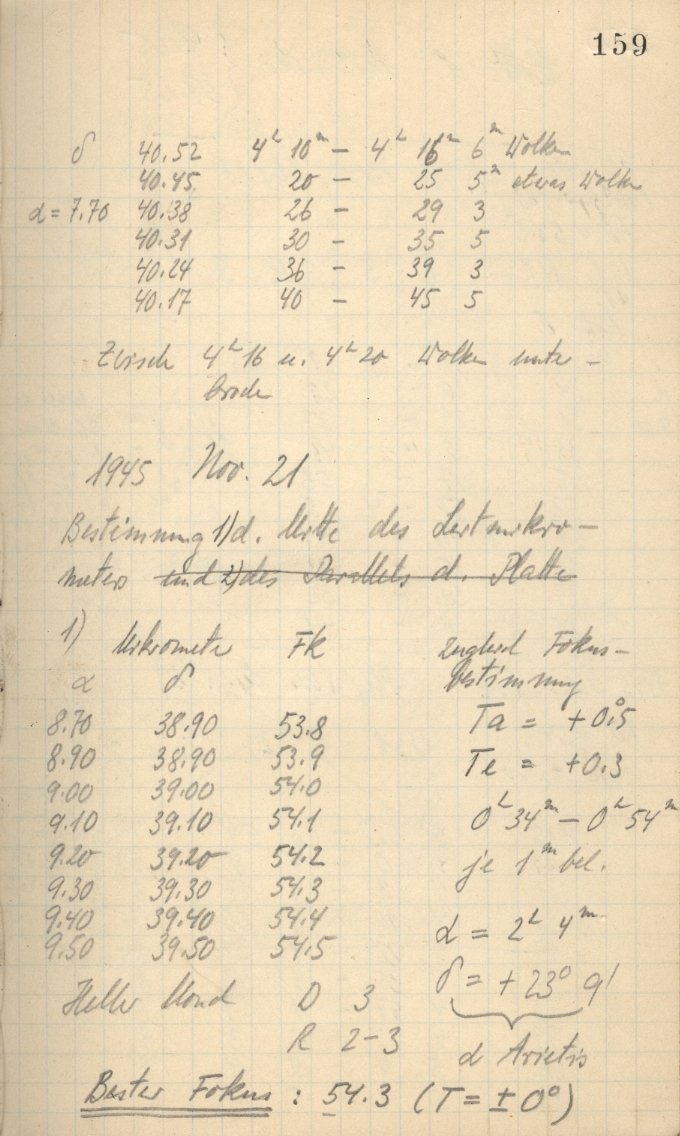 159
δ 40.52 4ʰ 10ᵐ – 4ʰ 16ᵐ 6ᵐ Wolken
40.45 20 – 25 5ᵐ etwas Wolken
α = 7.70 40.38 26 – 29 3
40.31 30 – 35 5
40.24 36 – 39 3
40.17 40 – 45 5
Zwisch 4ʰ 16 u. 4ʰ 20 Wolken unter-
broch
1945 Nov. 21
Bestimmung 1) d. Mitte des Leitmikro-
meters und 2) des Parallels d. Platte
1) Mikrometer FK Zugleich Fokus-
α δ bestimmung
8.70 38.90 53.8 Ta = +0.°5
8.90 38.90 53.9 Te = +0.3
9.00 39.00 54.0
9.10 39.10 54.1 0ʰ 34ᵐ – 0ʰ 54ᵐ
9.20 39.20 54.2 je 1ᵐ bel.
9.30 39.30 54.3
9.40 39.40 54.4 α = 2ʰ 4ᵐ
9.50 39.50 54.5
Heller Mond D 3 δ = +23° 9'
R 2–3 α Arietis
Bester Fokus : 54.3 (T = ±0°)